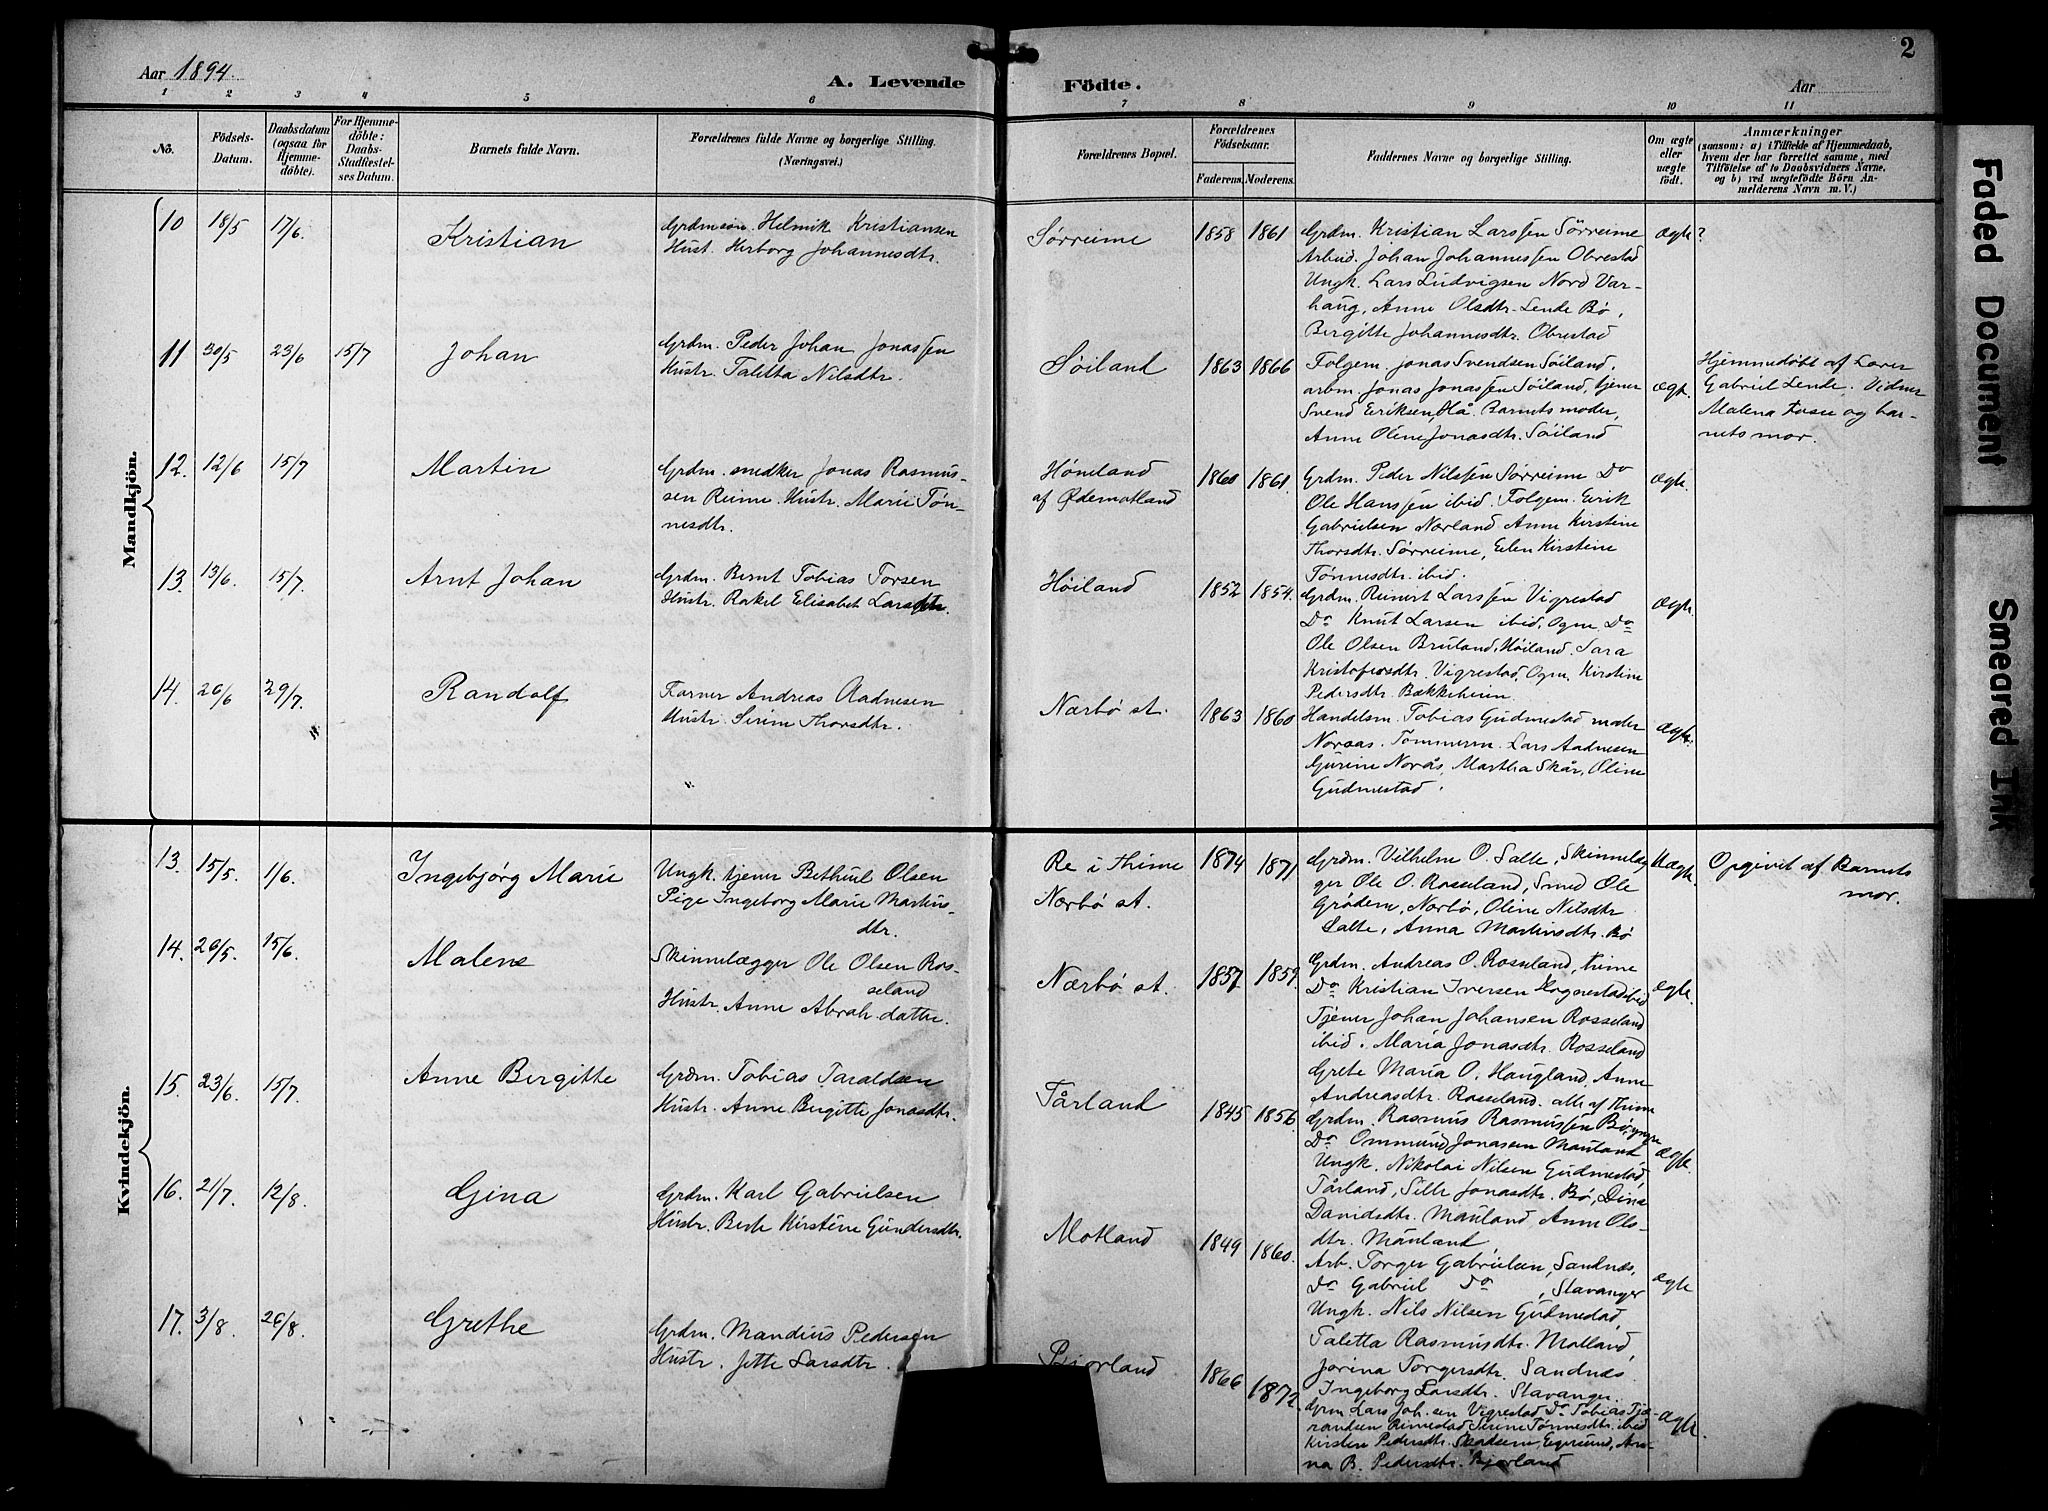 Aar 1894.
A. Levende
Födte.
Aar
2
1 2 3 4 5 6 7 8 9 10 11
No.
Födsels-
Datum.
Daabsdatum
(ogsaa for
Hjemme-
döbte).
For Hjemme-
döbte:
Daabs-
Stadfæstel-
ses Datum.
Barnets fulde Navn.
Forældrenes fulde Navne og borgerlige Stilling.
(Næringsvei.)
Forældrenes Bopæl.
Forældrenes
Födselsaar.
Faderens. Moderens.
Faddernes Navne og borgerlige Stilling.
Om ægte
eller
uægte
födt.
Anmærkninger
(saasom: a) i Tilfælde af Hjemmedaab,
hvem der har forrettet samme, med
Tilföielse af to Daabsvidners Navne,
og b) ved uægtefödte Börn An-
melderens Navn m. V.)
Mandkjön.
10 18/5 17/6 Kristian
Grdmsøn. Helmik Kristiansen
Hust. Herborg Johannesdtr.
Sørreime 1858 1861
Grdm. Kristian Larssen Sørreime
Arbeid. Johan Johannessen Obrestad
Ungk. Lars Ludvigsen Nord Var-
haug, Anne Olsdtr. Lende Bø,
Bergitte Johannesdtr. Obrestad
ægte ?
11 30/5 23/6 15/7 Johan
Grdm. Peder Johan Jonassen
Hustr. Taletta Nilsdtr.
Søiland 1863 1866
Folgem. Jonas Svendsen Søiland,
arbm. Jonas Jonassen Søiland, tjener
Svend Eriksen Hå. Barnets moder,
Anne Oline Jonasdtr. Søiland
ægte.
Hjemmedøbt af Lærer
Gabriel Lende. Vidner
Malena Fosse og bar-
nets mor.
12. 12/6 15/7 Martin
Grdm. snedker Jonas Rasmus-
sen Reime. Hustr. Marie Tøn-
nesdtr.
Høneland
af Ødemotland
1860 1861.
Grdm. Peder Nilssen Sørreime Do
Ole Hanssen ibid. Folgem. Eirik
Gabrielsen Nærland. Anne Kirstine
Thorsdtr. Sørreime, Elen Kirstine
Tønnesdtr. ibid.
ægte.
13. 13/6 15/7. Arnt Johan
Grdm. Bernt Tobias Torsen
Hustr. Rakel Elisabet Larsdtr.
Høiland 1852 1854.
Grdm. Reinert Larssen Vigrestad
Do Knut Larsen ibid, Ogne, Do
Ole Olsen Bruland, Høiland. Sara
Kristofersdtr. Vigrestad, Ogne, Kirstine
Pedersdtr. Bækkeheien
ægte.
14. 26/6 29/7. Randolf
Garver Andreas Aadnesen
Hustr. Serine Thorsdtr.
Nærbø st. 1863 1860
Handelsm. Tobias Gudmestad maler
Noraas. Tømmerm. Lars Aadnesen
Gurine Norås, Martha Skår, Oline
Gudmestad.
ægte.
Kvindekjön.
13. 15/5. 1/6. Ingebjörg Marie
Ungk. tjener Bethuel Olsen
Pige Ingeborg Marie Martins-
dtr.
Re i Thime
Nærbø st.
1874 1871
Grdm. Vilhelm O. Salte, Skinnelæg-
ger Ole O. Rosseland, Smed Ole
Grødem, Nærbø, Oline Nilsdtr
Salte, Anna Martinsdtr. Bø
Uægte.
Opgivet af Barnets
mor.
14. 26/5. 15/6. Malene
Skinnelægger Ole Olsen Ros-
seland
Hustr. Anne Abrah.datter.
Nærbø st. 1857 1859
Grdm. Andreas O. Rosseland, Thime
Do Kristian Iversen Hognestad ibid
Tjener Johan Johansen Rosseland
ibid. Maria Jonasdtr. Rosseland
Grete Maria O. Haugland, Anne
Andreasdtr. Rosseland. alle af Thime
ægte.
15. 23/6. 15/7. Anne Bergitte
Grdm. Tobias Taraldsen
Hustr. Anne Bergitte Jonasdtr.
Tårland 1845 1856
Grdm. Rasmus Rasmussen Bø,
Do Ommund Jonassen Mauland
Ungk. Nikolai Nilsen Gudmestad,
Tårland, Sille Jonasdtr. Bø, Dina
Davidsdtr. Mauland, Anne Ols-
dtr. Mauland
ægte.
16. 21/7. 12/8. Gina
Grdm. Karl Gabrielsen
Hustr. Berte Kirstine Gundersdtr.
Motland 1849 1860.
Arb. Torger Gabrielsen, Sandnæs,
Do Gabriel Do, Stavanger
Ungk. Nils Nilsen Gudmestad,
Taletta Rasmusdtr. Motland,
Jorina Torgersdtr. Sandnæs
Ingeborg Larsdtr. Stavanger.
ægte
17. 3/8. 26/8. Grethe
Grdm. Mandius Pedersen
Hustr. Jette Larsdtr.
Bjorland 1866 1872.
Grm Lars Joh.sen Vigrestad Do Tobias Tjæ-
randsen Rimestad Serine Tønnesdtr. ibid
Kirsten Pedersdtr. Skadsem, Egersund, An-
na B. Pedersdtr. Bjorland
ægte.
Faded Document
Smeared Ink